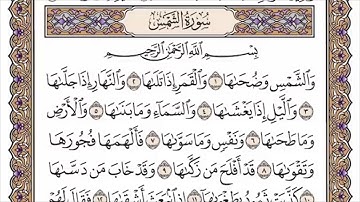 سُورَةُ الشَّمْسِ
بِسْمِ اللَّهِ الرَّحْمَٰنِ الرَّحِيمِ
وَالشَّمْسِ وَضُحَىٰهَا ١ وَالْقَمَرِ إِذَا تَلَىٰهَا ٢ وَالنَّهَارِ إِذَا جَلَّىٰهَا
٣ وَاللَّيْلِ إِذَا يَغْشَىٰهَا ٤ وَالسَّمَاءِ وَمَا بَنَىٰهَا ٥ وَالْأَرْضِ
وَمَا طَحَىٰهَا ٦ وَنَفْسٍ وَمَا سَوَّىٰهَا ٧ فَأَلْهَمَهَا فُجُورَهَا
وَتَقْوَىٰهَا ٨ قَدْ أَفْلَحَ مَن زَكَّىٰهَا ٩ وَقَدْ خَابَ مَن دَسَّىٰهَا
١٠ كَذَّبَتْ ثَمُودُ بِطَغْوَىٰهَا ١١ إِذِ انبَعَثَ أَشْقَىٰهَا ١٢ فَقَالَ لَهُمْ